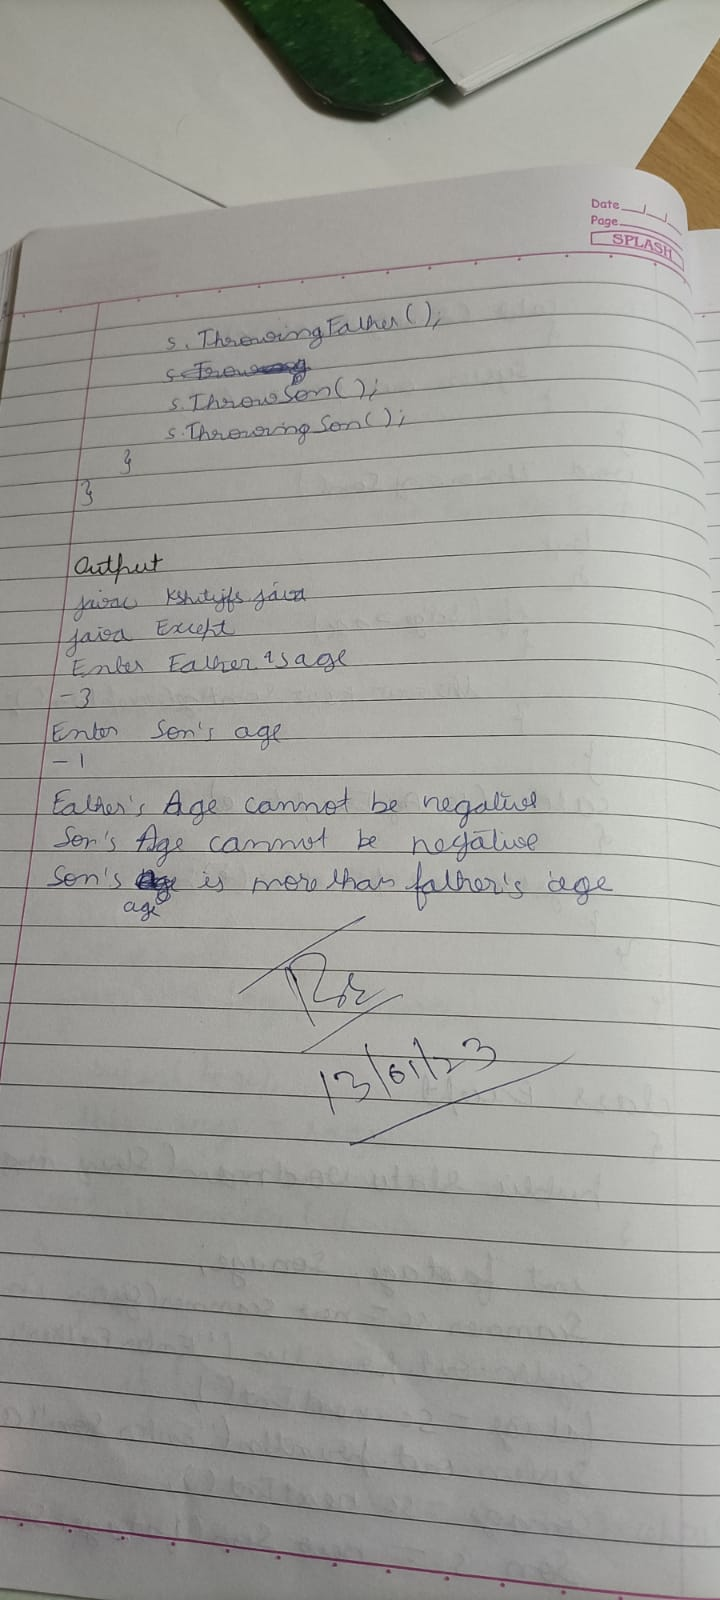 Date
Page
SPLASH
s. ThrowingFather();
s. ThrowSon();
s. Throwing Son();
}
}
Output
javac Kshitijfs java
java Except
Enter Father's age
-3
Enter Son's age
-1
Father's Age cannot be negative
Son's Age cannot be negative
Son's age is more than father's age
13/01/23